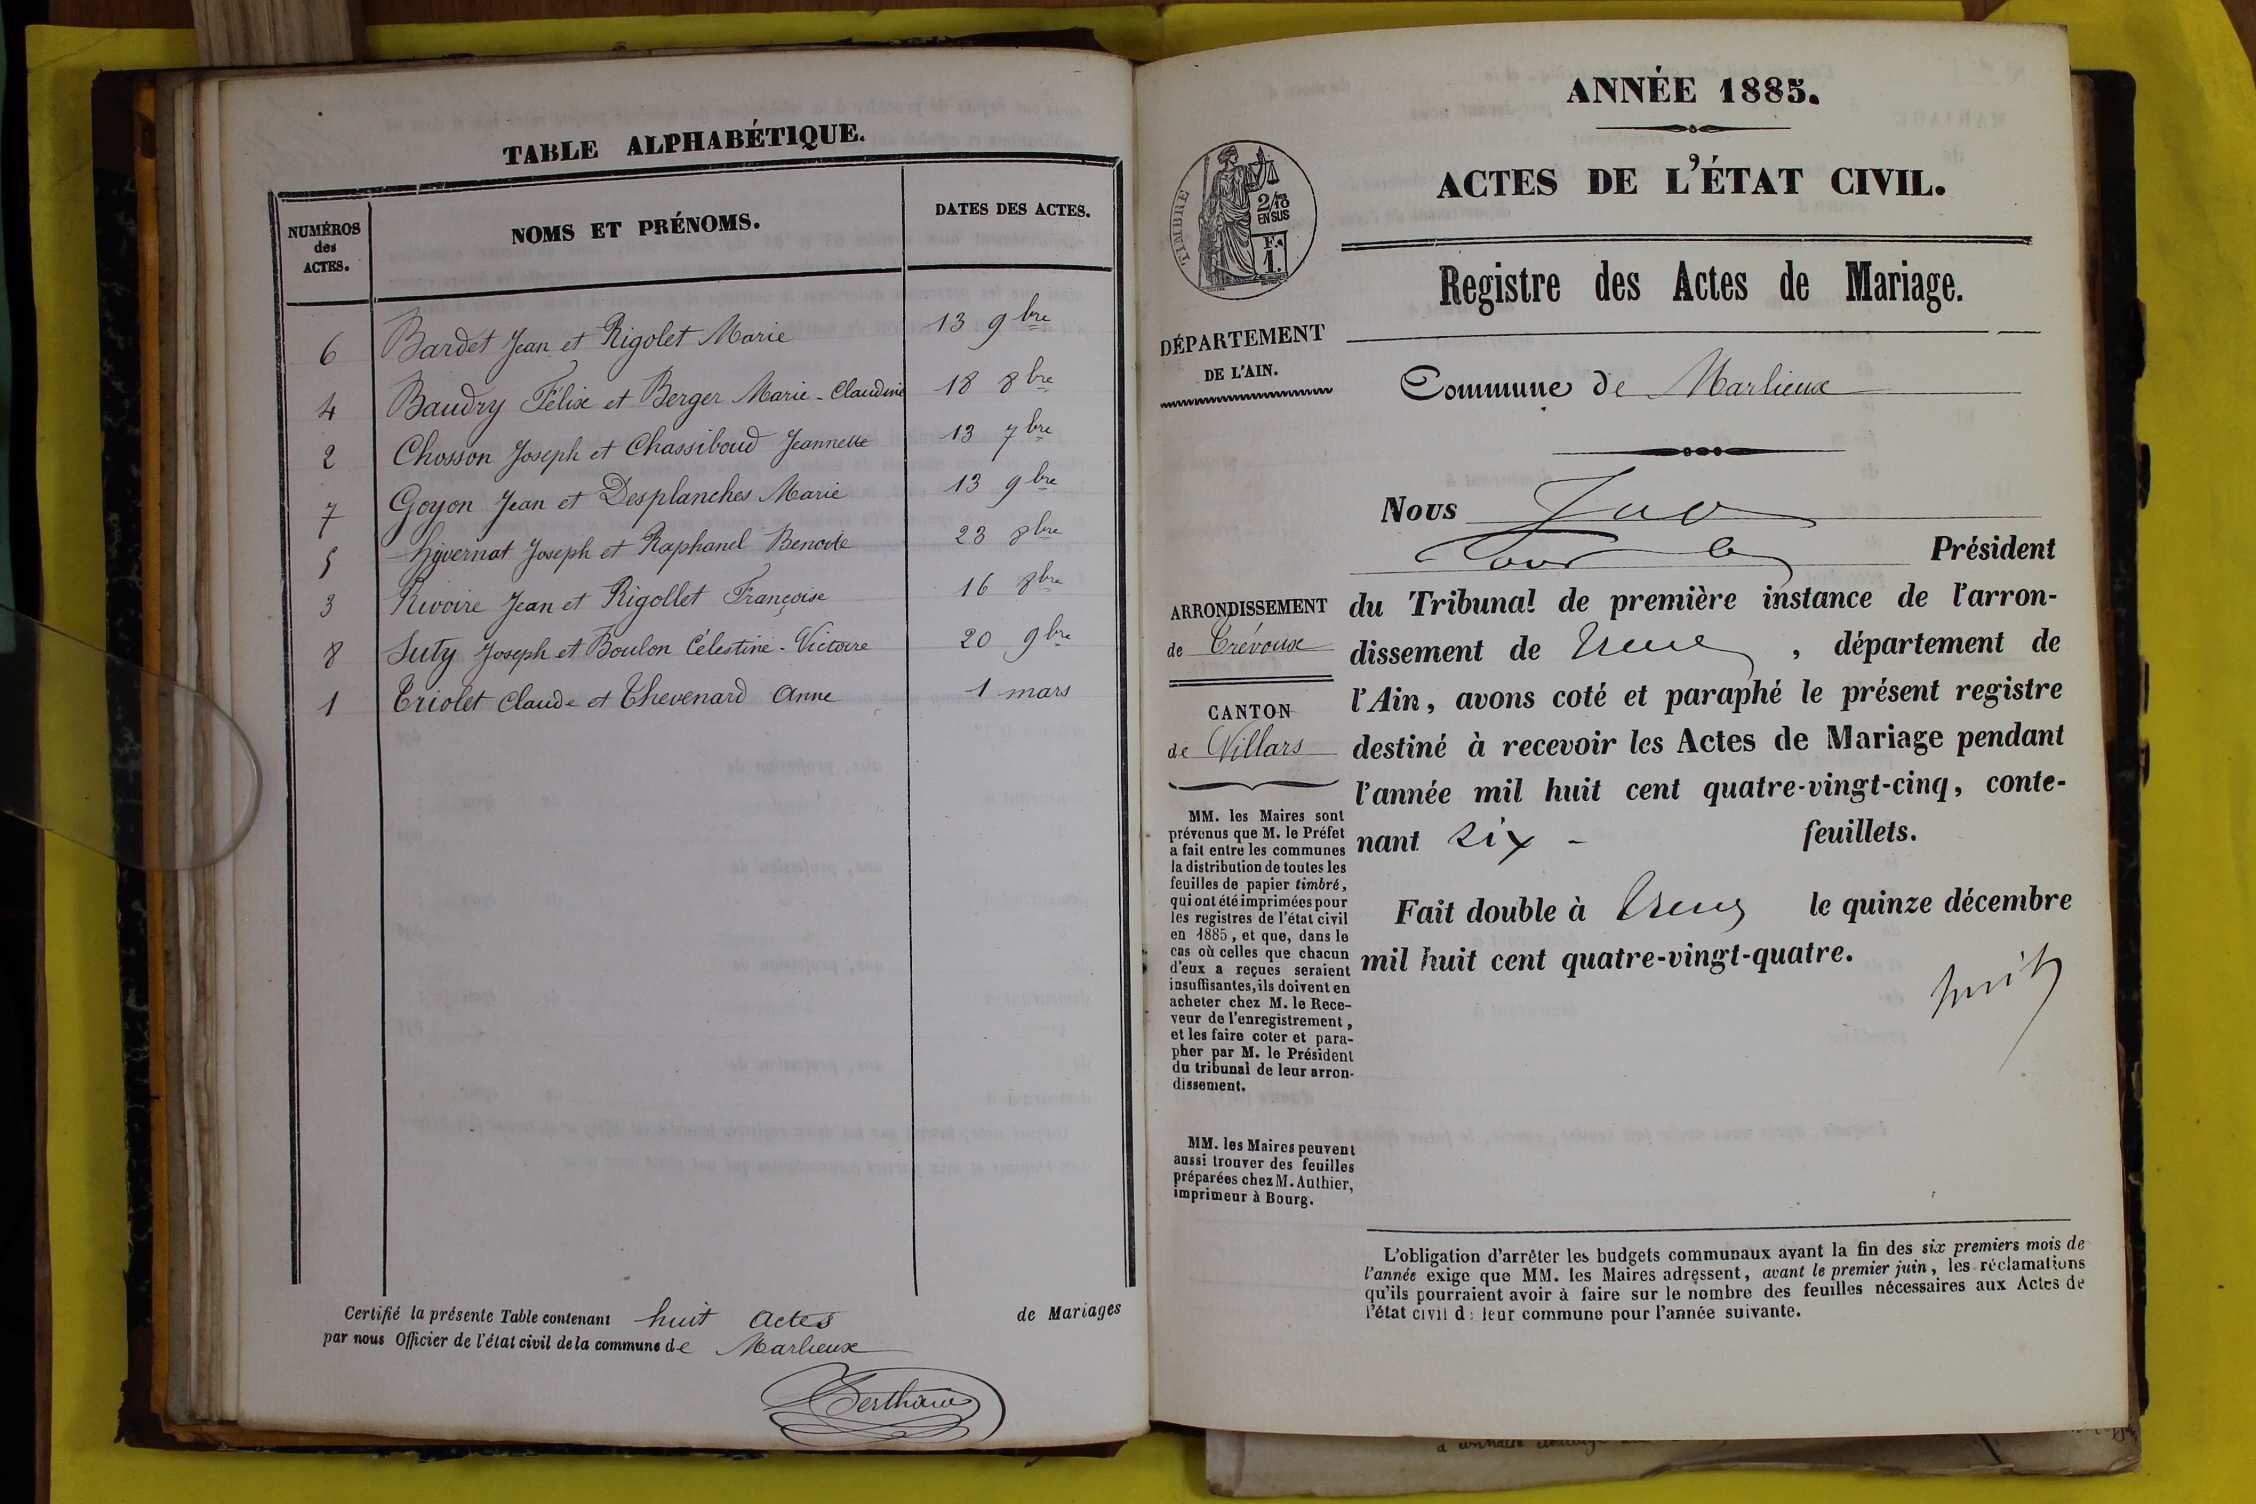 TABLE ALPHABÉTIQUE.
NUMÉROS
des
ACTES.
NOMS ET PRÉNOMS.
DATES DES ACTES.
6 Bardet Jean et Rigolet Marie 13 9bre
4 Baudry Félix et Berger Marie-Claudine 18 8bre
2 Chosson Joseph et Chassiboud Jeannette 13 7bre
7 Goyon Jean et Desplanches Marie 13 9bre
5 hyvernat Joseph et Raphanel Benoite 23 8bre
3 Rivoire Jean et Rigollet Françoise 16 8bre
8 Suty Joseph et Boulon Célestine-Victoire 20 9bre
1 Triolet Claude et Thevenard Anne 1 mars
Certifié la présente Table contenant huit actes de Mariages
par nous Officier de l'état civil de la commune de Marlieux
ANNÉE 1885.
ACTES DE L'ÉTAT CIVIL.
TIMBRE
2/10
EN SUS
F.
1.
Registre des Actes de Mariage.
DÉPARTEMENT
DE L'AIN.
Commune de Marlieux
Nous
Président
ARRONDISSEMENT
de Trévoux
CANTON
de Villars
du Tribunal de première instance de l'arron-
dissement de , département de
l'Ain, avons coté et paraphé le présent registre
destiné à recevoir les Actes de Mariage pendant
l'année mil huit cent quatre-vingt-cinq, conte-
nant six - feuillets.
Fait double à le quinze décembre
mil huit cent quatre-vingt-quatre.
MM. les Maires sont
prévenus que M. le Préfet
a fait entre les communes
la distribution de toutes les
feuilles de papier timbré,
qui ont été imprimées pour
les registres de l'état civil
en 1885, et que, dans le
cas où celles que chacun
d'eux a reçues seraient
insuffisantes, ils doivent en
acheter chez M. le Rece-
veur de l'enregistrement,
et les faire coter et para-
pher par M. le Président
du tribunal de leur arron-
dissement.
MM. les Maires peuvent
aussi trouver des feuilles
préparées chez M. Authier,
imprimeur à Bourg.
L'obligation d'arrêter les budgets communaux avant la fin des six premiers mois de
l'année exige que MM. les Maires adressent, avant le premier juin, les réclamations
qu'ils pourraient avoir à faire sur le nombre des feuilles nécessaires aux Actes de
l'état civil de leur commune pour l'année suivante.